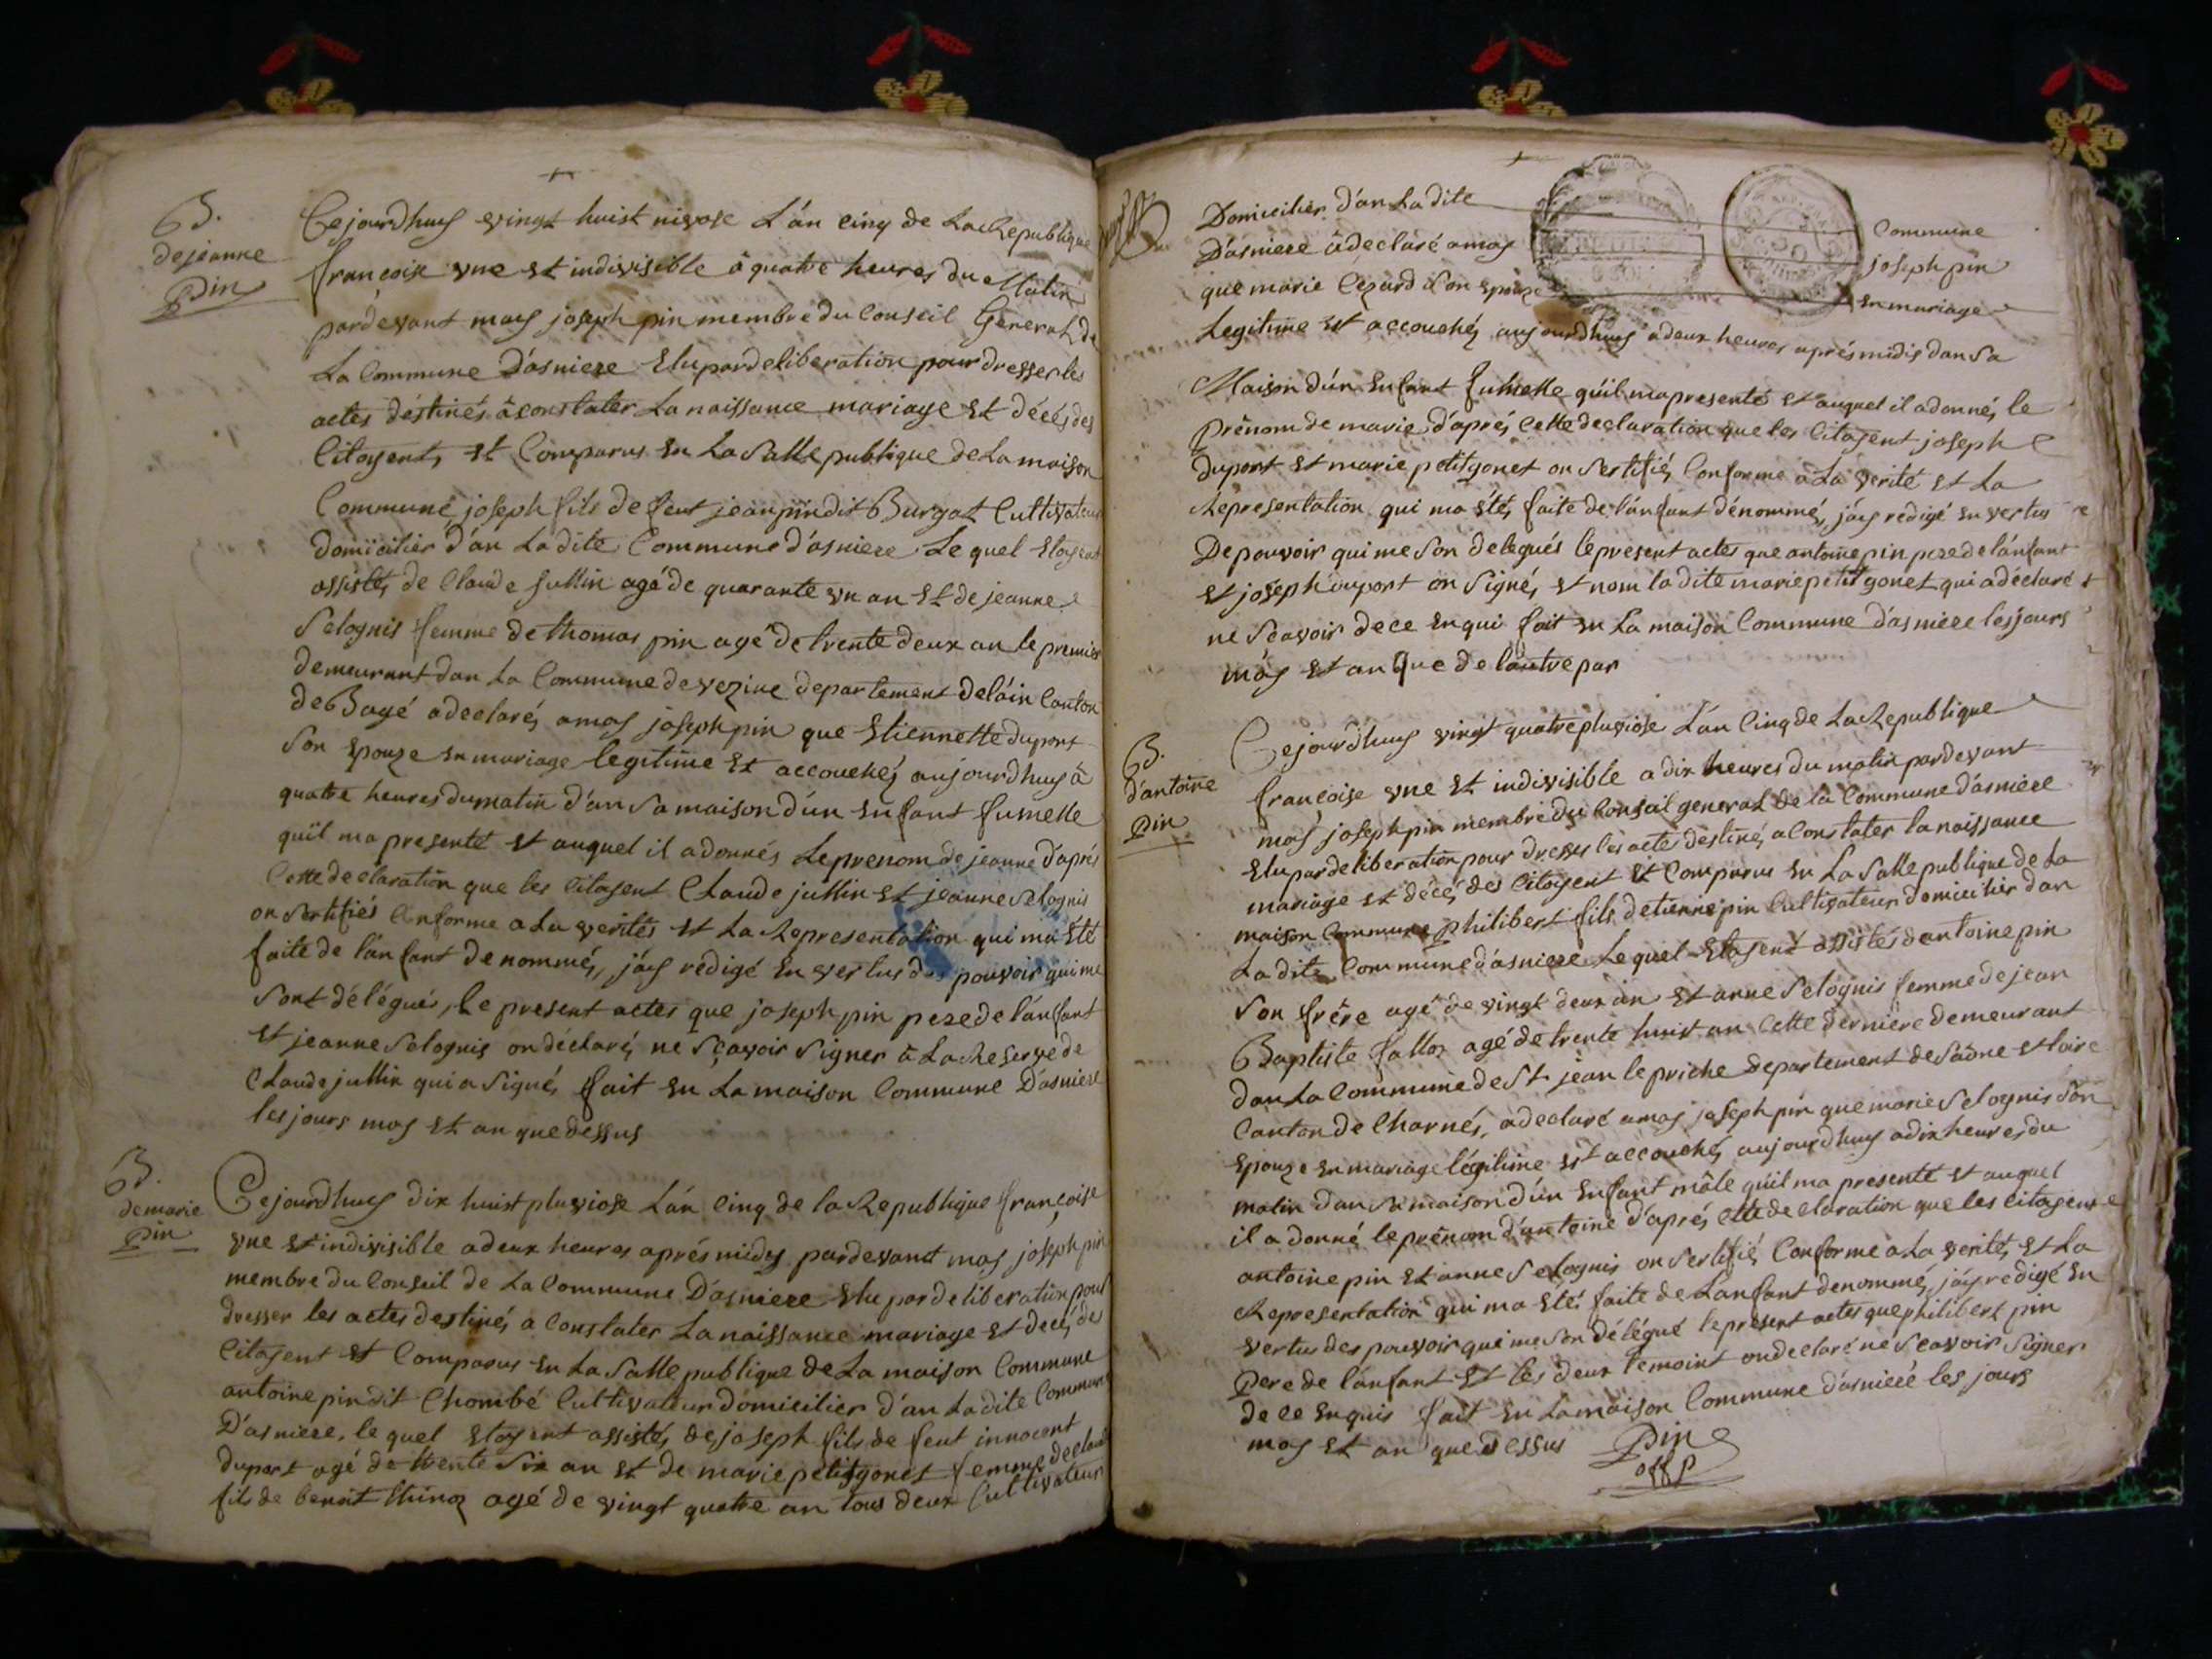 B.
de jeanne
Pin
Cejourdhuy vingt huist nivose L'an cinq de La Republique
francoise vne et indivisible à quatre heures du Matin
pardevant moy joseph pin membre du Conseil General de
La Commune D'asniere Elu par deliberation pour dresser les
actes déstinés à constater La naissance mariage Et décés des
Citoyent, et Comparus En La Salle publique de La maison
Commune joseph fils de feut jean pin dit Burgat Cultivateur
domicilier d'an La dite Commune d'asniere Le quel Etoyent
assistés de Claude jullin agé de quarante vn an Et de jeanne
Selognis femme de thomas pin agé de trente deux an le premier
demeurant dan La Commune de vezine departement de láin Canton
de Bagé a declarés a moy joseph pin que Etiennette dupont
Son Epouze En mariage legitime Et accouchés aujourdhuy à
quatre heures du matin d'an Sa maison d'un Enfant fumelle
quil ma presenté et auquel il a donnés Le prenom de jeanne d'aprés
Cette declaration que les Citoyent Claude jullin et jeanne Selognis
on Sertifiés Conforme a La verités et La Representation qui ma Eté
faite de l'anfant denommés, j'ay redigé En vertus des pouvoir qui me
Sont délégués, le present actes que joseph pin pere de l'anfant
et jeanne Selognis on déclaré, ne Sçavoir Signer à La Reserve de
Claude jullin qui a Signé, fait En La maison Commune D'asniere
les jours moy Et an que dessus
B.
de marie
Pin
Cejourdhuy dix huist pluviose L'an cinq de la Republique françoise
vne et indivisible a deux heures aprés midy pardevant moy joseph pin
membre du Conseil de La Commune D'asniere Elu par deliberation pour
dresser les actes destinés a Constater La naissance mariage et decés des
Citoyent et Comparus En La Salle publique de La maison Commune
antoine pin dit Chombé Cultivateur domicilier d'an La dite Commune
D'asniere, le quel Etoyent assistés de joseph fils de feut innocent
dupont agé de trente Six an et de marie petitgonet femme de claude
fils de benoit agé de vingt quatre an tous deux Cultivateur
Domicilier d'an La dite Commune
D'asniere à declaré a moy joseph pin
que marie Cezard Son Epouze En mariage
Legitime Et accouchés aujourdhuy a deux heures aprés midis dan Sa
Maison d'un Enfant fumelle qu'il ma presentés et auquel il a donnés le
Prénom de marie d'aprés Cette declaration que les Citoyent joseph
dupont et marie petitgonet on Sertifiés Conforme a La verité et La
Representation qui ma été, faite de l'anfant dénommé, j'ay redigé En vertus
De pouvoir qui me Son delegués le present actes que antoine pin pere de l'anfant
et joseph dupont on Signés, et nom la dite marie petitgonet qui a déclaré
ne Scavoir de ce Enqui fait En La maison Commune d'asniere les jours
moy et an que de l'autre par
B.
d'antoine
Pin
Cejourdhuy vingt quatre pluviose L'an Cinq de La Republique
francoise vne et indivisible a dix heures du matin pardevant
moy joseph pin membre du Conseil general de la Commune d'asniere
Elu par deliberation pour dresser les actes destinés a Constater la naissance
mariage et décés des Citoyent et Comparus En La Salle publique de La
maison Commune philibert fils detienne pin Cultivateur domicilier dan
La dite Commune d'asniere Le quel Etoyent assistés dantoine pin
Son frére agé de vingt deux an et anne Selognis femme de jean
Baptiste agé de trente huist an Cette derniere demeurant
dan La Commune de St jean le priche departement de Saône et loire
Canton de Charnés, a declaré a moy joseph pin que marie Selognis Son
Epouze En mariage légitime Et accouchés aujourdhuy a dix heures du
matin d'an Sa maison d'un Enfant mâle quil ma presenté et auquel
il a donné le prénom d'antoine d'aprés Cette declaration que les citoyent
antoine pin et anne Selognis on Sertifié Conforme a La verités, et La
Representation qui ma Eté, faite de L'anfant denommé, j'ay redigé En
vertus des pouvoir qui me Son délégué le present actes que philibert pin
Pere de l'anfant Et les deux temoint on declaré ne Scavoir Signer
de ce Enquis fait En La maison Commune d'asniere les jours
moy Et an que dessus Pin
off P